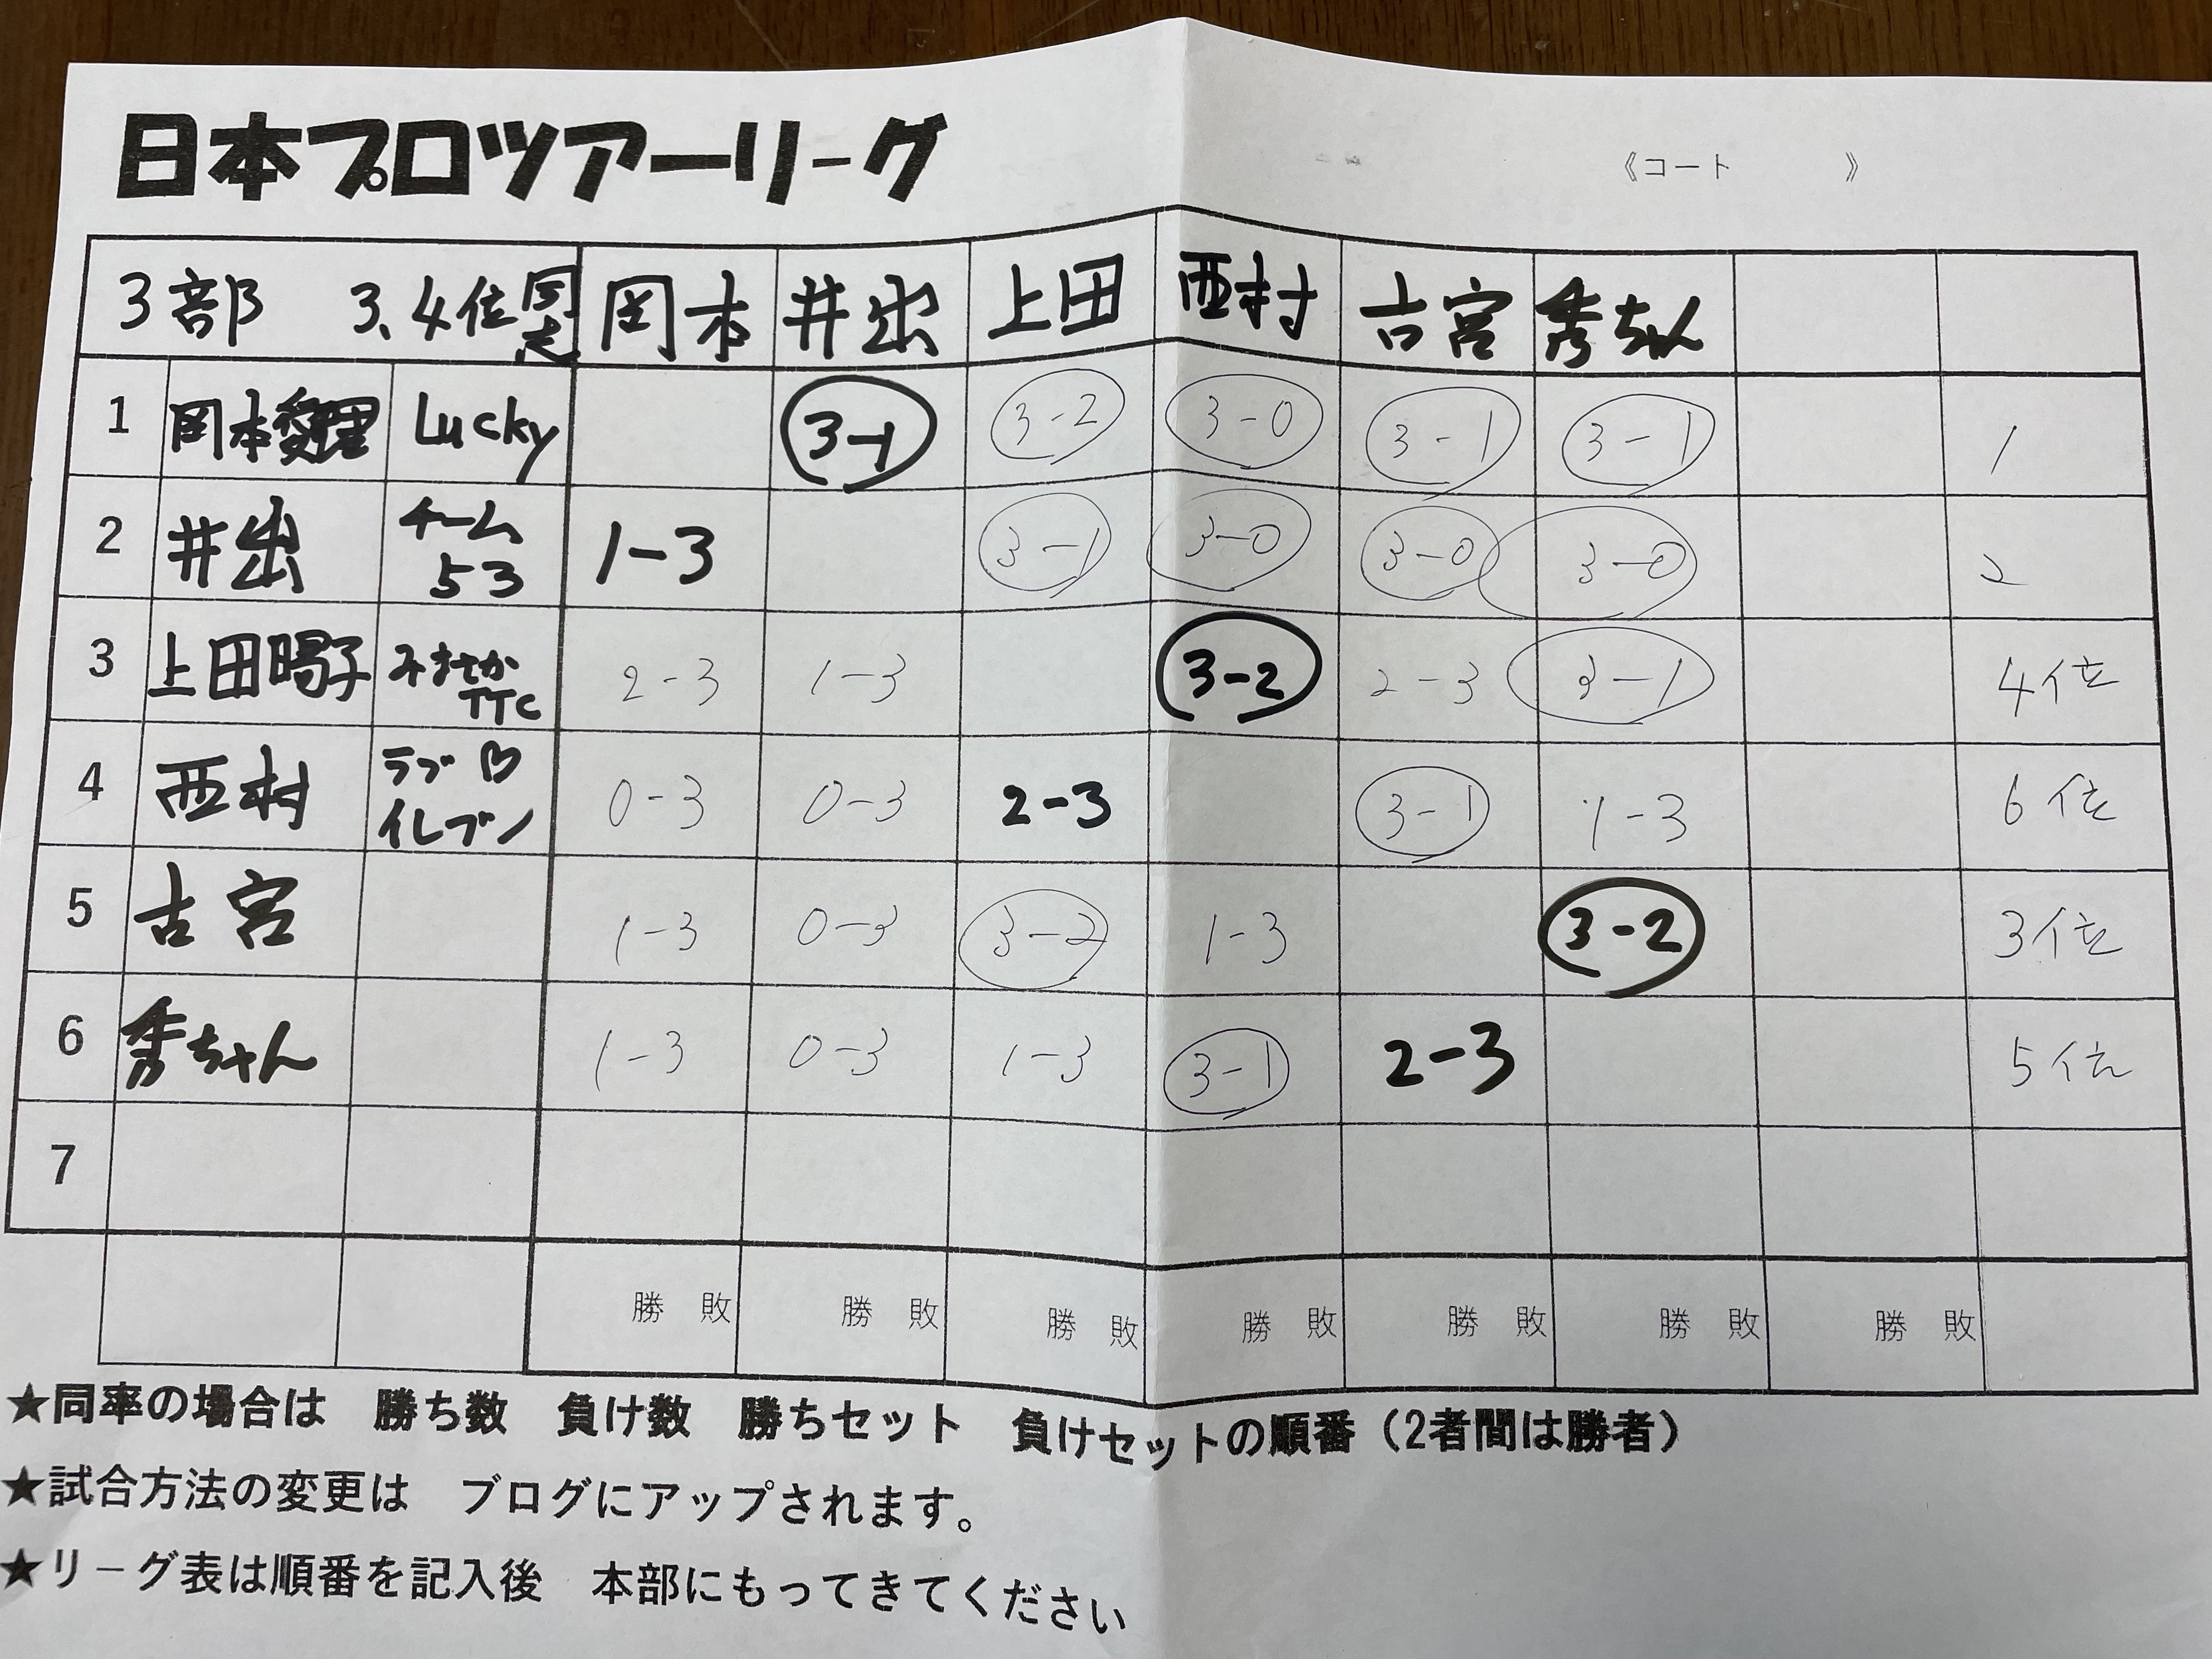 日本プロツアーリーグ
《コート 》
3部 3、4位同志 岡本 井出 上田 西村 古宮 秀ちゃん
1 岡本愛理 Lucky 3-1 3-2 3-0 3-1 3-1 1
2 井出 チーム53 1-3 3-1 3-0 3-0 3-0 2
3 上田陽子 みまさかTTC 2-3 1-3 3-2 2-3 3-1 4位
4 西村 ラブ♡イレブン 0-3 0-3 2-3 3-1 1-3 6位
5 古宮 1-3 0-3 3-2 1-3 3-2 3位
6 秀ちゃん 1-3 0-3 1-3 3-1 2-3 5位
7
勝 敗 勝 敗 勝 敗 勝 敗 勝 敗 勝 敗 勝 敗
★同率の場合は 勝ち数 負け数 勝ちセット 負けセットの順番（2者間は勝者）
★試合方法の変更は ブログにアップされます。
★リーグ表は順番を記入後 本部にもってきてください